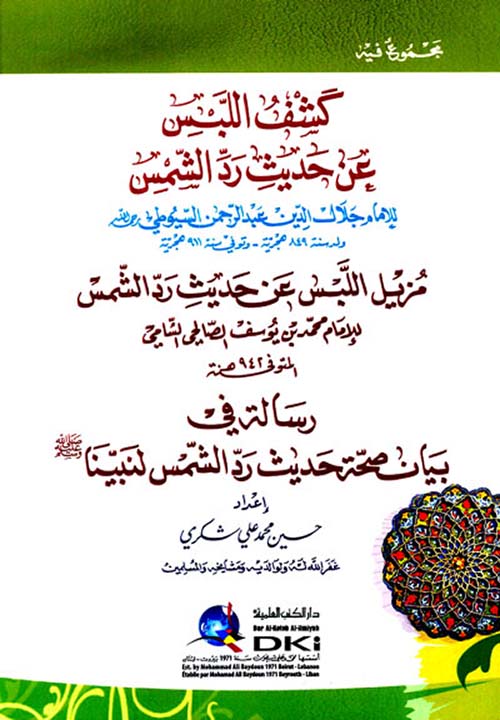 مجموع فيه
كشف اللبس
عن حديث رد الشمس
للإمام جلال الدين عبد الرحمن السيوطي رحمه الله
ولد سنة ٨٤٩ هجرية - وتوفي سنة ٩١١ هجرية
مزيل اللبس عن حديث رد الشمس
للإمام محمد بن يوسف الصالحي الشامي
المتوفى ٩٤٢ هنة
رسالة في
بيان صحة حديث رد الشمس لنبينا ﷺ
إعداد
حسين محمد علي شكري
غفر الله له ولوالديه ومشايخه والمسلمين
دار الكتب العلمية
Dar Al-Kotob Al-ilmiyah
DKi
أسسها محمد علي بيضون سنة 1971 بيروت - لبنان
Est. by Mohammad Ali Baydoun 1971 Beirut - Lebanon
Établie par Mohamad Ali Baydoun 1971 Beyrouth - Liban